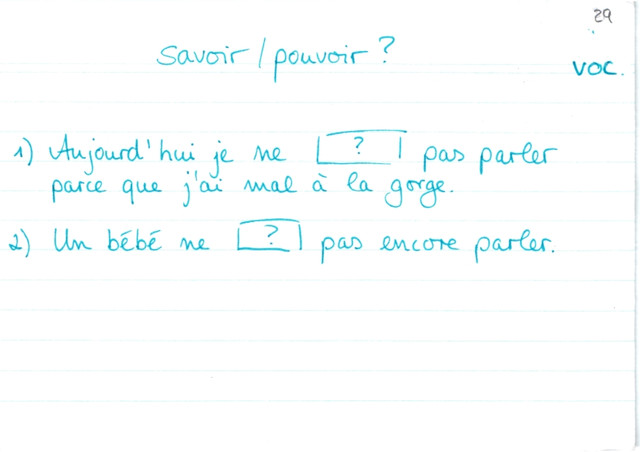 29
savoir / pouvoir ?
voc.
1) Aujourd'hui je ne ? pas parler
parce que j'ai mal à la gorge.
2) Un bébé ne ? pas encore parler.